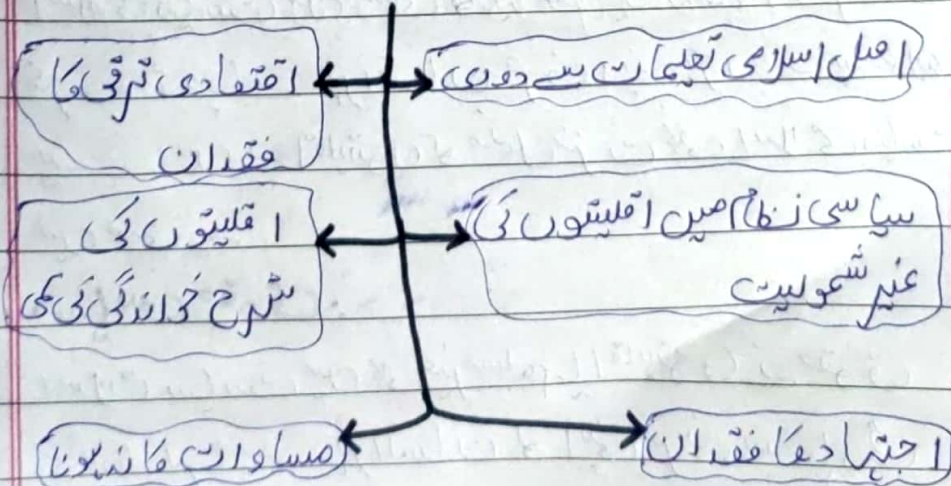 اصل اسلامی تعلیمات سے دوری
اقتصادی ترقی کا
فقدان
سیاسی نظام میں اقلیتوں کی
غیر شمولیت
اقلیتوں کی
شرح خواندگی کی کمی
اجتہاد کا فقدان
مساوات کا نہ ہونا